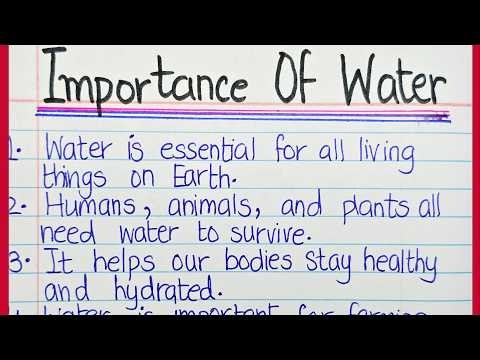 Importance Of Water
1. Water is essential for all living
things on Earth.
2. Humans, animals, and plants all
need water to survive.
3. It helps our bodies stay healthy
and hydrated.
Water is important for farming